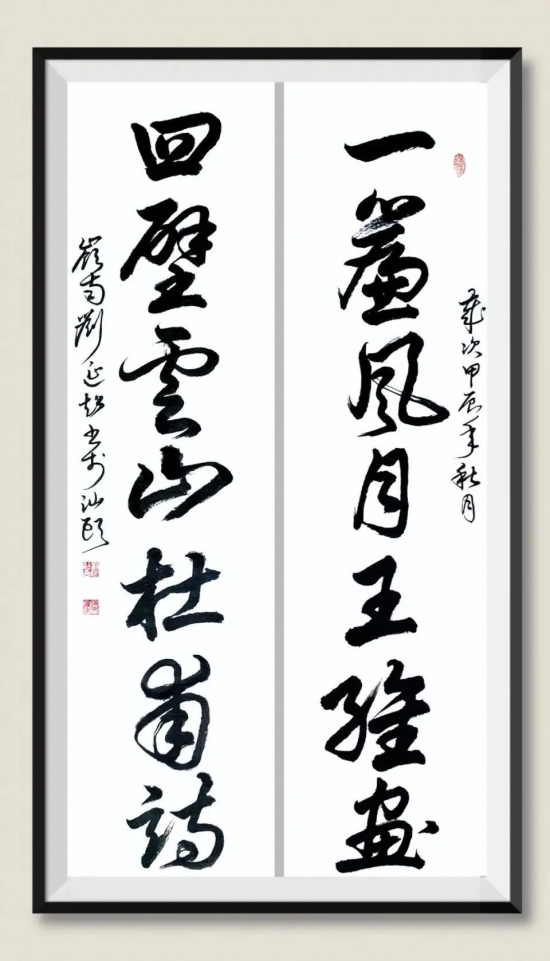 歲次甲辰年秋月
一簾風月王維畫
四壁雲山杜甫詩
嶺南劉延超書於汕頭